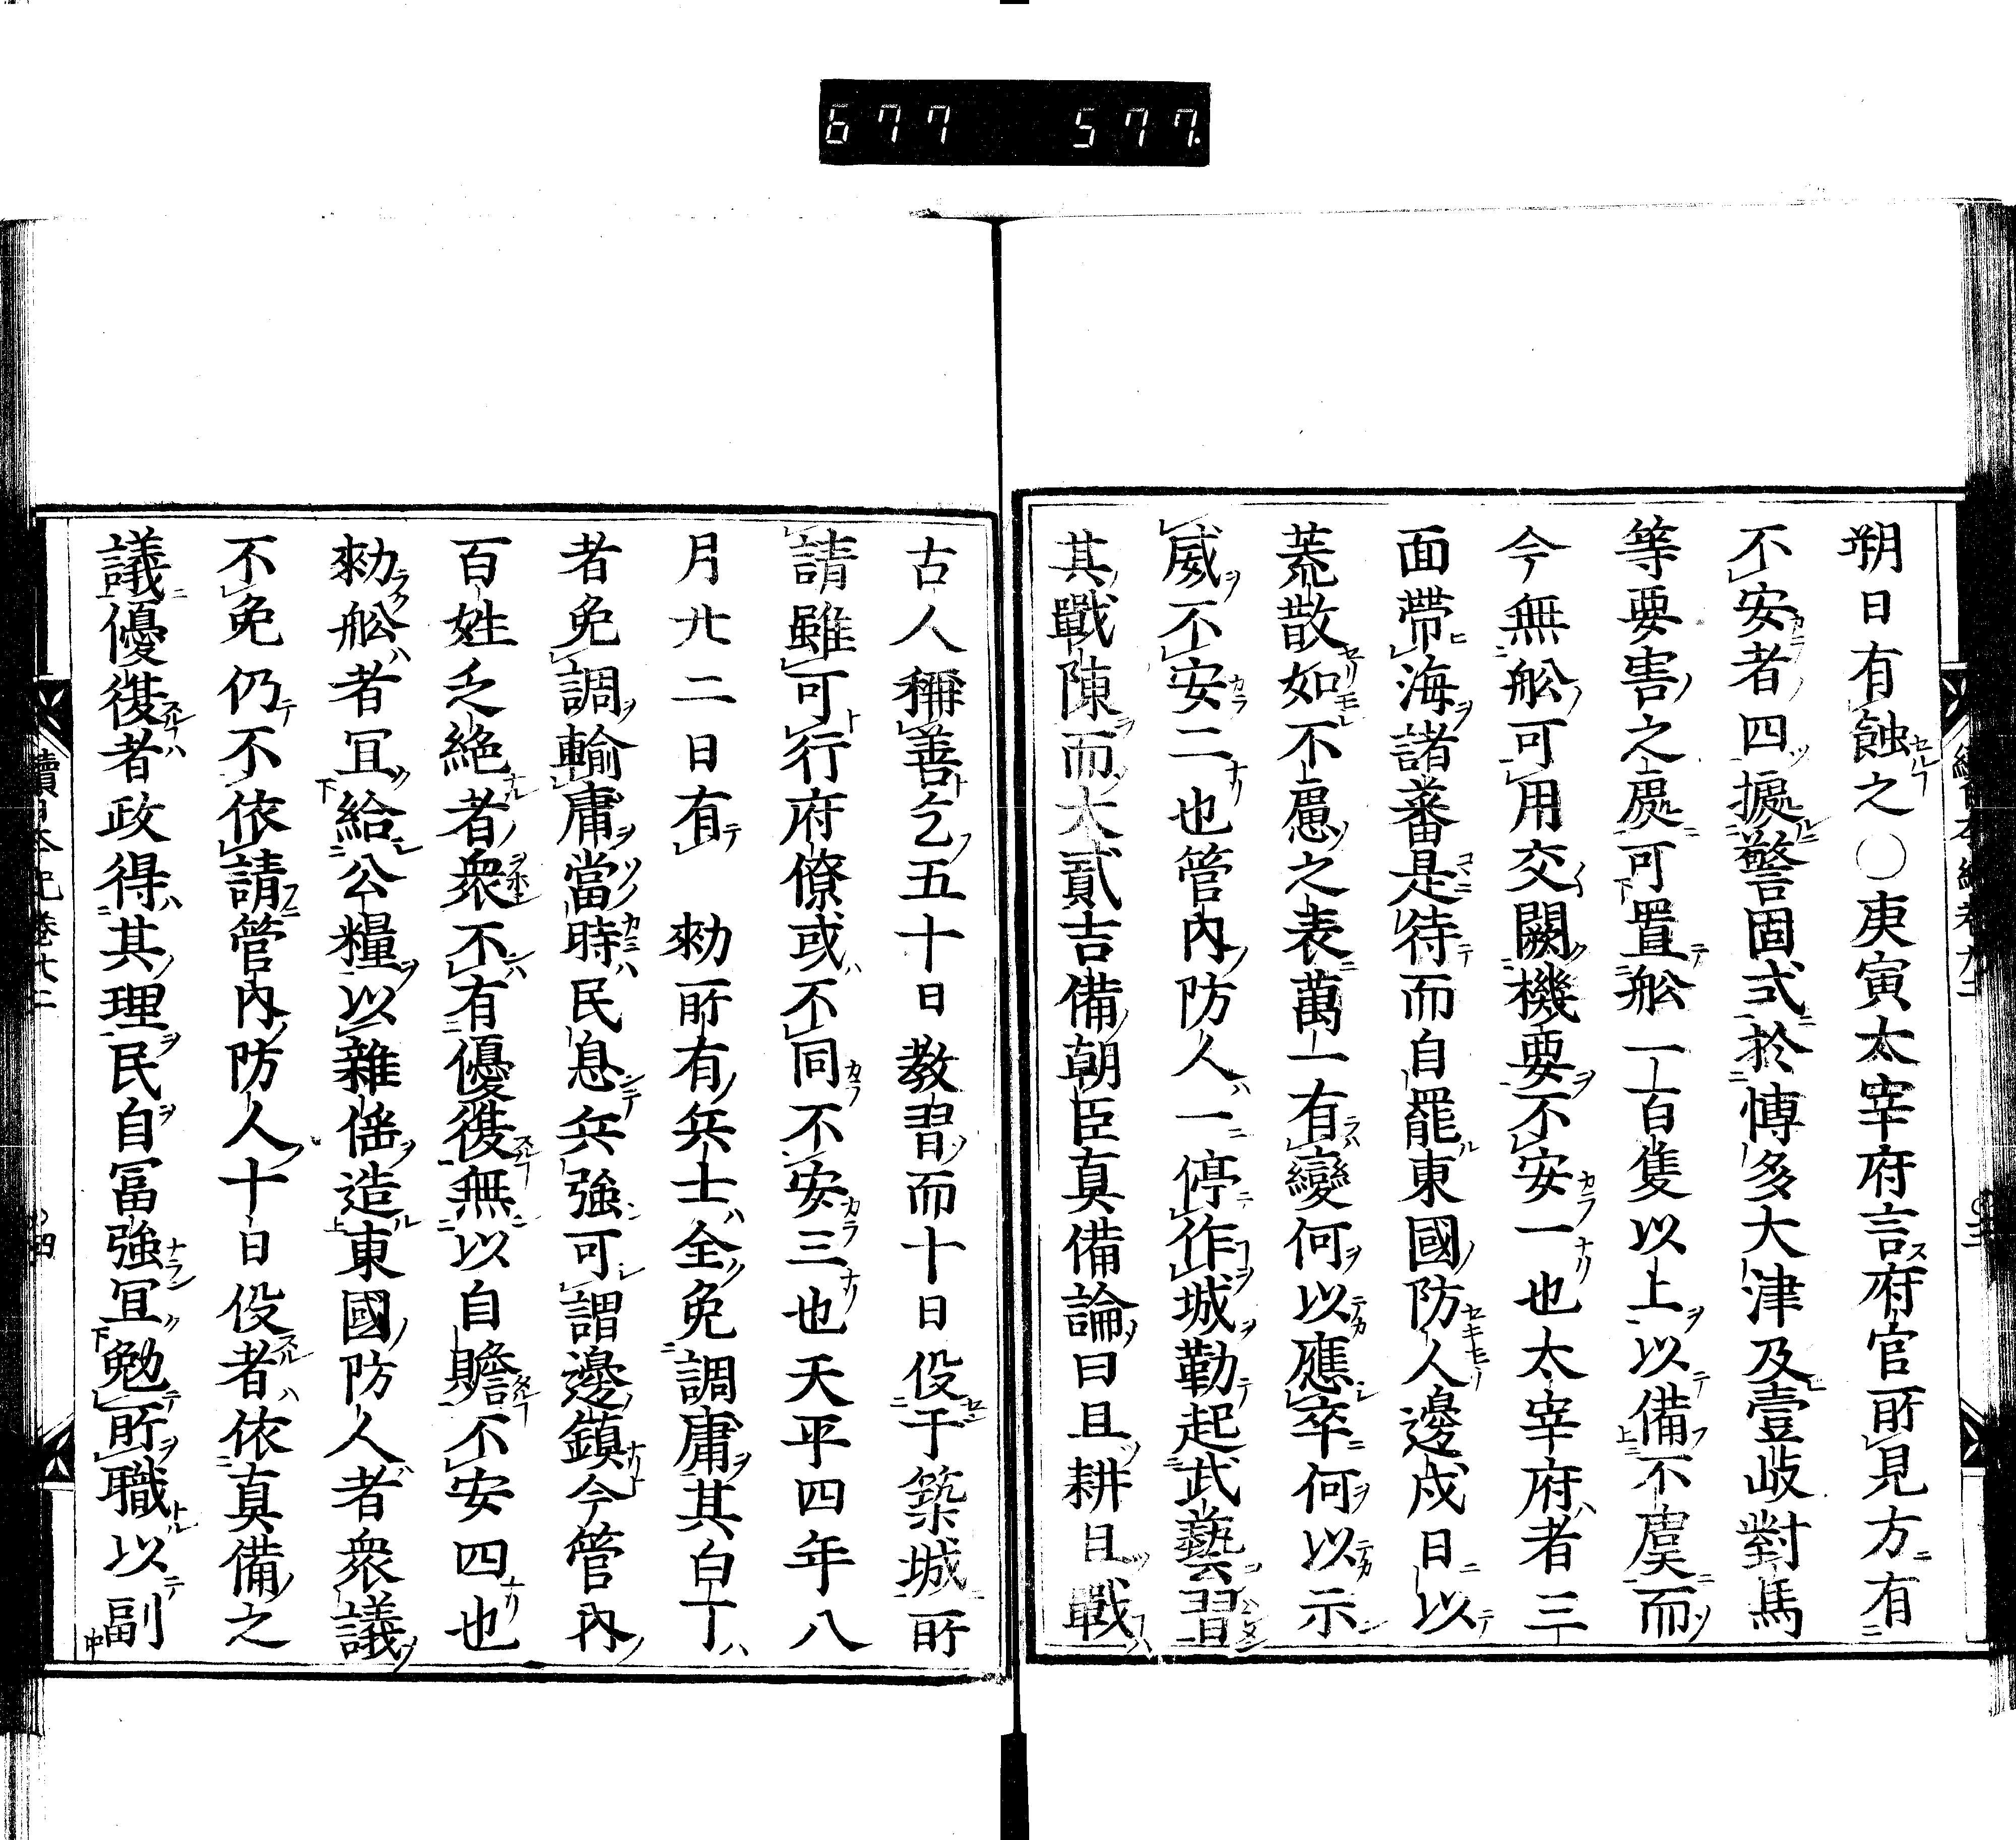 677 577.
朔日有蝕之〇庚寅太宰府言府官所見方有
不安者四據警固式於博多大津及壹岐對馬
等要害之處可置舩一百隻以上以備不虞而
今無舩可用交闕機要不安一也太宰府者三
面帶海諸蕃是待而自罷東國防人邊戍日以
荒散如不慮之表萬一有變何以應卒何以示
威不安二也管內防人一停作城勤起武藝習
其戰陳而大貳吉備朝臣真備論曰且耕且戰
古人稱善乞五十日教習而十日役于築城所
請雖可行府僚或不同不安三也天平四年八
月廿二日有勑所有兵士全免調庸其白丁
者免調輸庸當時民息兵強可謂邊鎮今管內
百姓乏絕者衆不有優復無以自贍不安四也
勑舩者宜給公糧以雜徭造東國防人者衆議
不免仍不依請管內防人十日役者依真備之
議優復者政得其理民自冨強宜勉所職以副